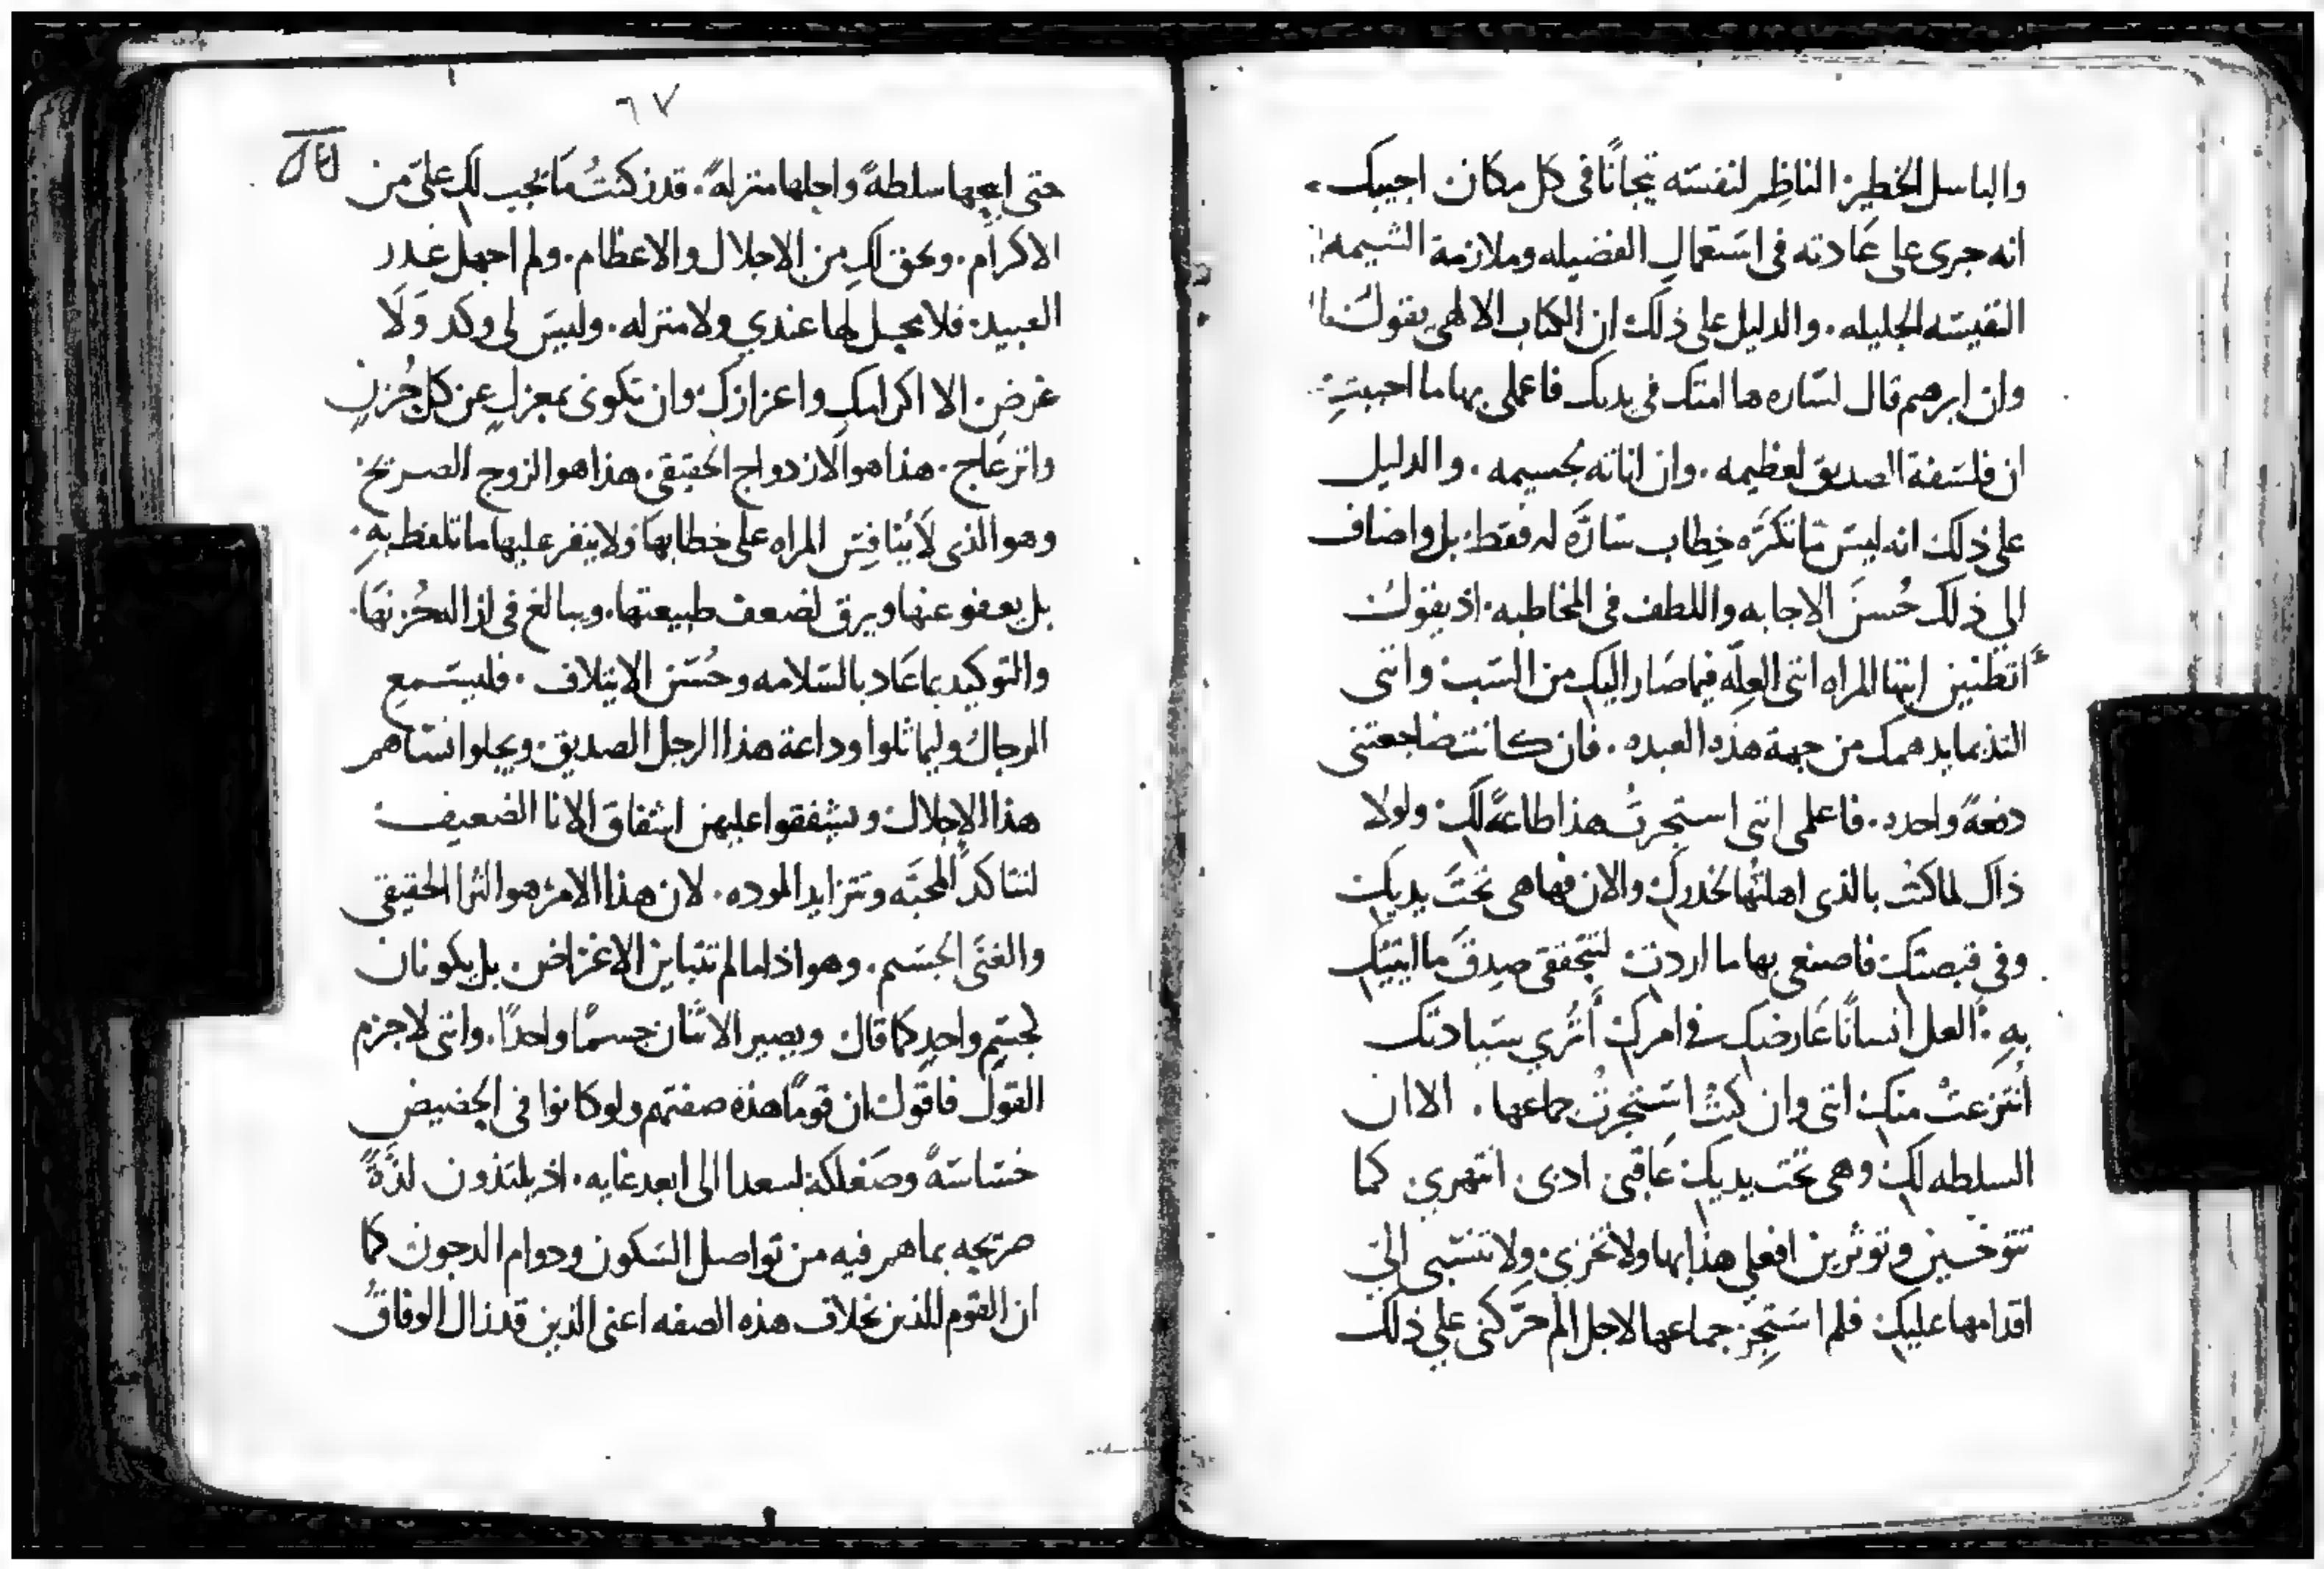 والباسل الخطير الناظر لنفسه تيجانًا فى كل مكان اجيبك
انه جرى على عَادته فى استعمال الفضيله وملازمة الشيمه
النفيسه الجليله. والدليل على ذلك ان الكتاب الالهى يقول
وان ابرهيم قال لسَاره ها امتك فى يديك فاعملى بها ما احببتِ
ان فلسَفة الصديق لعظيمه. وان اناته لجسيمه. والدليل
على ذلك انه ليسَ ما تكرَّه خِطاب سَارَّه له فقط. بل واضاف
الى ذلك حُسنَ الاجابه واللطف فى المخاطبه. اذ يقول
اتظنين ايتها المراه اننى العِلّه فيما صَار اليك من السَبب واننى
التذ بما يدهمك من جهة هذه العبده. فان كانت ضاجعتنى
دفعةً واحده. فاعلمى اننى استجرتُ هذا طاعةً لكِ ولولا
ذاك لما كنتُ بالذى اهلتُها لخدركِ والان فها هى تحتَ يديكِ
وفى قبضتكِ فاصنعى بها ما اردتِ لتتحققى صِدقَ ما انبيتكِ
بهِ: العل انسانًا عَارضكِ فى امركِ أتُرى سَيادتكِ
اُنتزعتْ منكِ اننى وان كنتُ استجرتُ جماعها. الا ان
السلطه لكِ وهى تحت يديكِ عَاقبى ادبى. انتهرى كما
تتوخين وتوثرين افعلى هذا بها ولا تحزنى. ولا تنسبى الىّ
اقدامها عليكِ فلم استجِز جماعها لاجل الم حَرَّكنى على ذلك
٦٧
حتى ابيحها سلطةً واجلها منزلةً. قد زكنتُ مَا يجب لكِ علىّ من
الاكرام. ويحق لكِ من الاجلال والاعظام. ولم اجهل غدر
العبيد: فلا محل لها عندى ولا منزله. وليسَ لى وكد وَلَا
غرض. الا اكرامكِ واعزازكِ وان تكونى بمعزلٍ عن كل حُزنٍ
وانزعَاج. هذا هو الازدواج الحقيقى. هذا هو الزوج الصريح
وهو الذى لَا يُنافِس المراه على خطابها ولا ينفر عليها ما تلفظ بهِ.
بل يعفو عنها ويرق لضعف طبيعتها. ويبالغ فى ازالة حُزنهَا.
والتوكيد بما عَاد بالسَلامه وحُسَن الايتلاف. فليستمع
الرجال وليماثلوا وداعة هذا الرجل الصديق. ويجلوا نسَاهم
هذا الاجلال ويشفقوا عليهن اشفاقَ الانا الضعيف
لتتاكد المحبَه وتتزايد الموده. لان هذا الامر هو الثرا الحقيقى
والغنَى الجسَيم. وهو اذا ما لم تتباين الاغرَاض. بل يكونان
لجسَمٍ واحدٍ كما قال ويصير الاثنان جسمًا واحدًا. واننى لاجزم
القول فاقول ان قومًا هذه صفتهم ولو كانوا فى الحضيض
خسَاسَةً وصَعلكة لسعدا الى ابعد غايه. اذ يلتذون لذَّةً
صريحه بما هم فيه من تواصل السَكون ودوام الدجون كما
ان القوم الذين بخلاف هذه الصفه اعنى الذين قد زال الوفاقُ